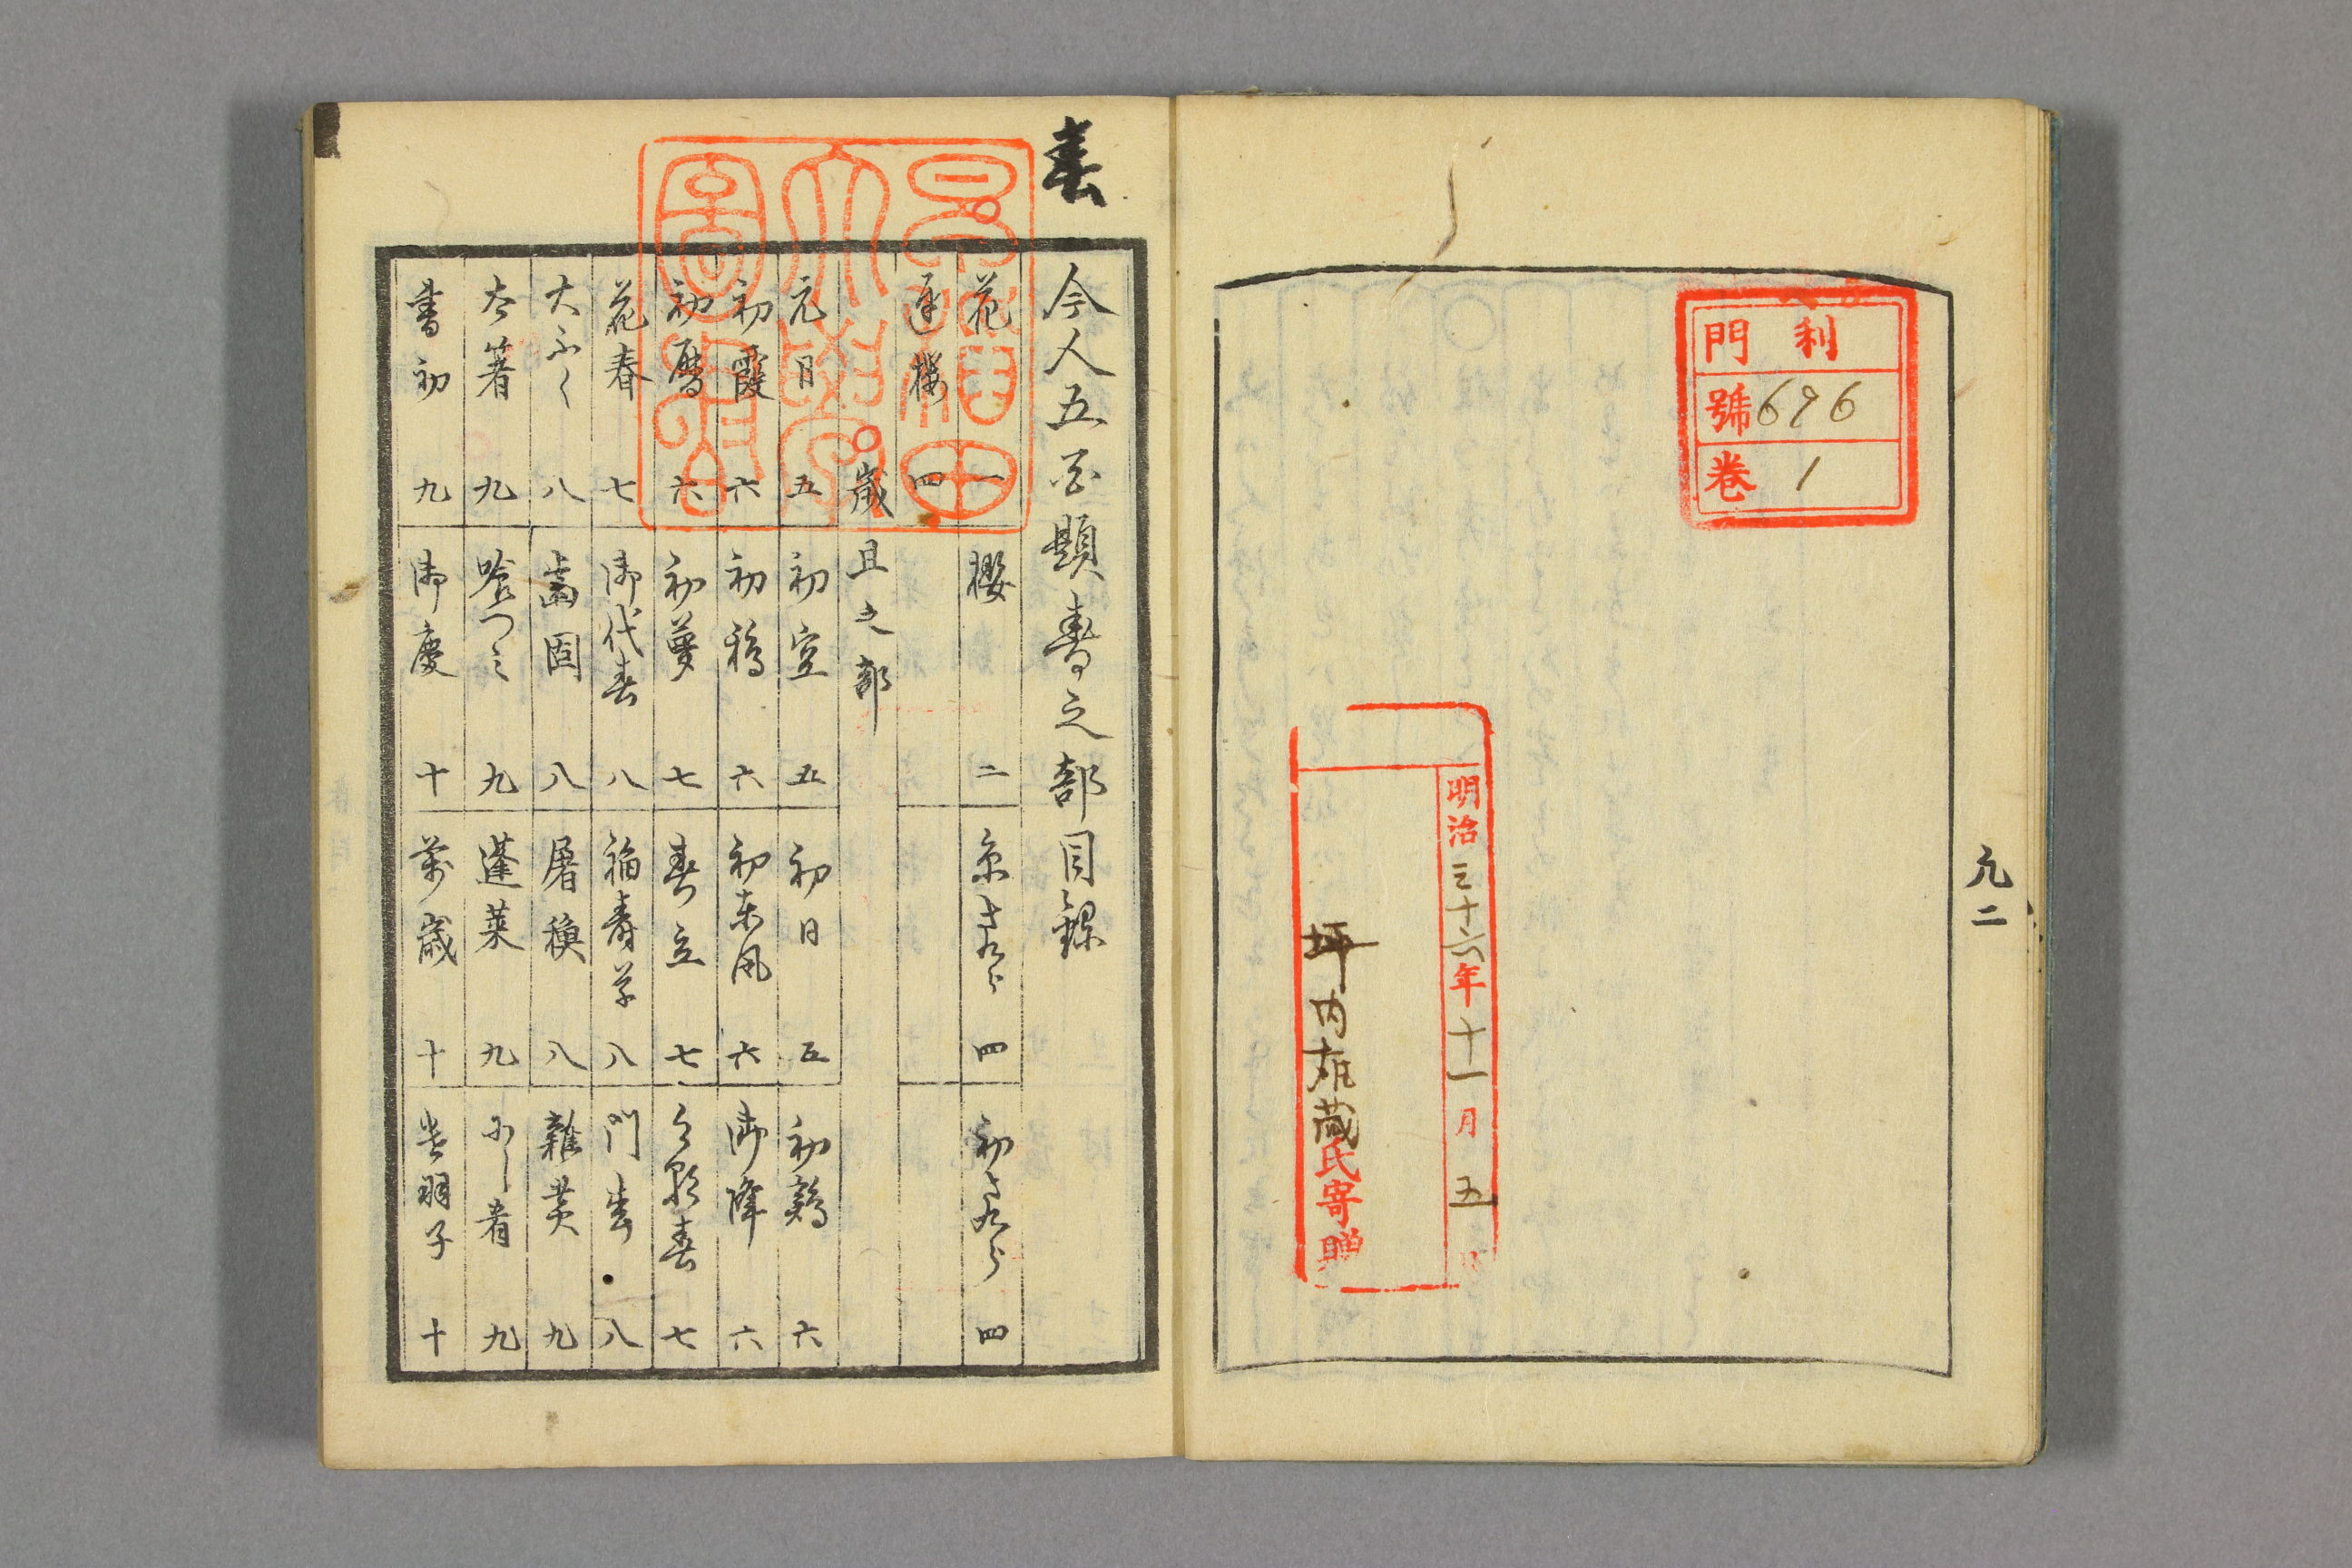 利門
號696
卷1
明治三十六年十一月五日
坪内雄蔵氏寄贈
凡二
春
早稲田大學圖書
今人五百題春之部目錄
花 一 櫻 二 糸さくら 四 初さくら 四
遅櫻 四
歳旦之部
元日 五 初空 五 初日 五 初鶏 六
初霞 六 初鴉 六 初東風 六 御降 六
初暦 六 初夢 七 春立 七 今朝春 七
花春 七 御代春 八 福寿草 八 門春 八
大ふく 八 歯固 八 屠蘓 八 雑煮 九
太箸 九 喰つみ 九 蓬莱 九 小し肴 九
書初 九 御慶 十 萬歳 十 羽子 十